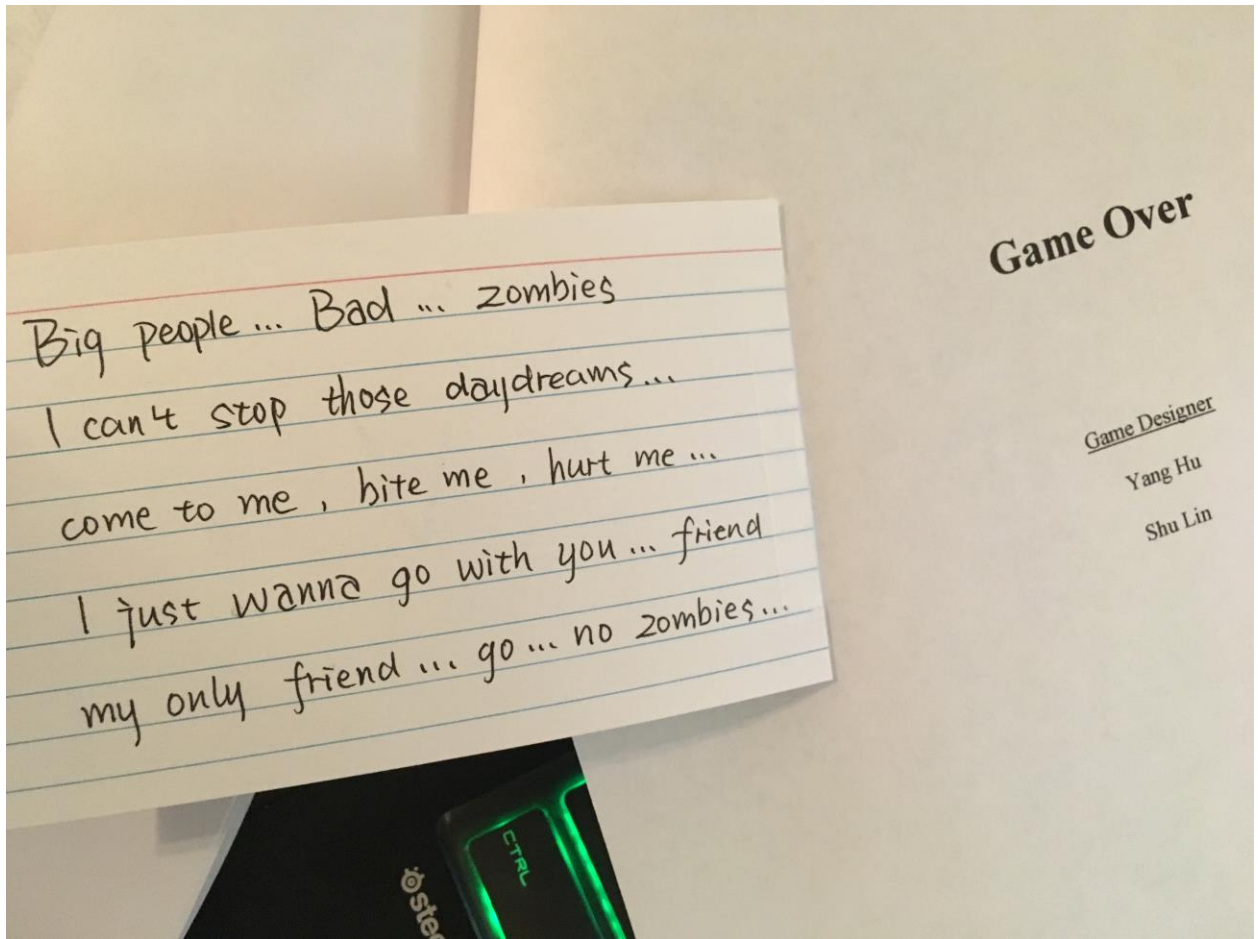 Big people... Bad... zombies
I can't stop those daydreams...
come to me, bite me, hurt me...
I just wanna go with you... friend
my only friend... go... no zombies...
Game Over
Game Designer
Yang Hu
Shu Lin
CTRL